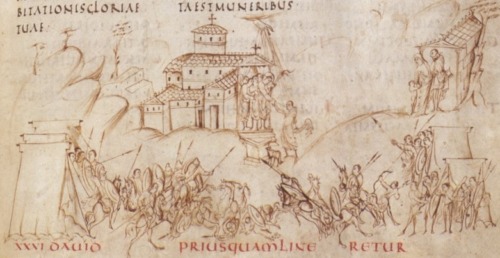 BITATIONIS GLORIAE
TUAE:
TA EST MUNERIBUS:
XXVI DAUID PRIUSQUAM LINERETUR